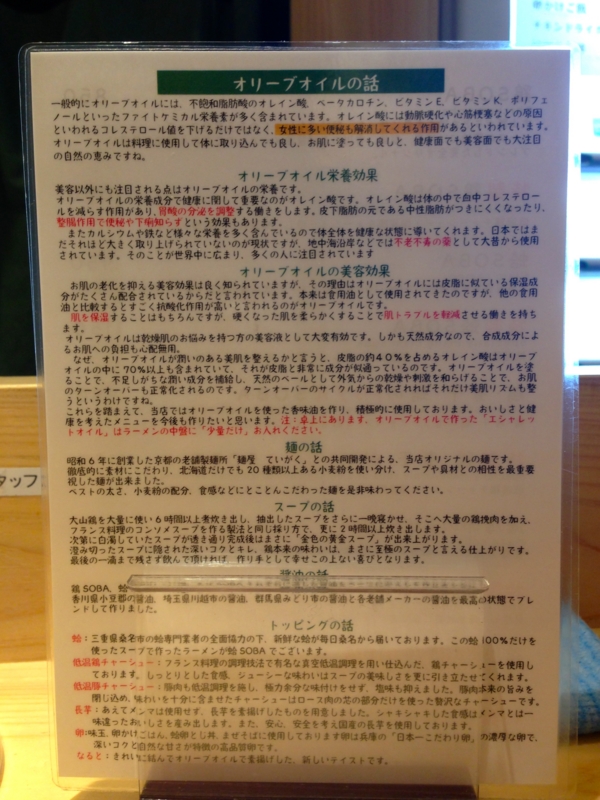 オリーブオイルの話
一般的にオリーブオイルには、不飽和脂肪酸のオレイン酸、ベータカロチン、ビタミンE、ビタミンK、ポリフェ
ノールといったファイトケミカル栄養素が多く含まれています。オレイン酸には動脈硬化や心筋梗塞などの原因
といわれるコレステロール値を下げるだけではなく、女性に多い便秘も解消してくれる作用があるといわれています。
オリーブオイルは料理に使用して体に取り込んでも良し、お肌に塗っても良しと、健康面でも美容面でも大注目
の自然の恵みですね。
オリーブオイル栄養効果
美容以外にも注目される点はオリーブオイルの栄養です。
オリーブオイルの栄養成分で健康に関して重要なのがオレイン酸です。オレイン酸は体の中で血中コレステロー
ルを減らす作用があり、胃酸の分泌を調整する働きをします。皮下脂肪の元である中性脂肪がつきにくくなったり、
整腸作用で便秘や下痢知らずという効果もあります。
またカルシウムや鉄など様々な栄養を多く含んでいるので体全体を健康な状態に導いてくれます。日本ではま
だそれほど大きく取り上げられていないのが現状ですが、地中海沿岸などでは不老不青の薬として大昔から使用
されています。そのことが世界中に広まり、多くの人に注目されています
オリーブオイルの美容効果
お肌の老化を抑える美容効果は良く知られていますが、その理由はオリーブオイルには皮脂に似ている保湿成
分がたくさん配合されているからだと言われています。本来は食用油として使用されてきたのですが、他の食用
油と比較するとすごく抗酸化作用が高いと言われるのがオリーブオイルです。
肌を保湿することはもちろんですが、硬くなった肌を柔らかくすることで肌トラブルを軽減させる働きを持ち
ます。
オリーブオイルは乾燥肌のお悩みを持つ方の美容液として大変有効です。しかも天然成分なので、合成成分によ
るお肌への負担も心配無用。
なぜ、オリーブオイルが潤いのある美肌を整えるかと言うと、皮脂の約40%を占めるオレイン酸はオリーブ
オイルの中に70%以上も含まれていて、それが皮脂と非常に成分が似通っているのです。オリーブオイルを塗
ることで、不足しがちな潤い成分を補給し、天然のベールとして外気からの乾燥や刺激を和らげることで、お肌
のターンオーバーも正常化されるのです。ターンオーバーのサイクルが正常化されればそれだけ美肌リズムも整
うというわけですね。
これらを踏まえて、当店ではオリーブオイルを使った香味油を作り、積極的に使用しております。おいしさと健
康を考えたメニューを今後も作りたいと思います。注：卓上にあります、オリーブオイルで作った「エシャレッ
トオイル」はラーメンの中盤に「少量だけ」お入れください。
麺の話
昭和6年に創業した京都の老舗製麺所「麺屋 ていがく」との共同開発による、当店オリジナルの麺です。
徹底的に素材にこだわり、北海道だけでも20種類以上ある小麦粉を使い分け、スープや具材との相性を最重要
視した麺が出来ました。
ベストの太さ、小麦粉の配分、食感などにとことんこだわった麺を是非味わってください。
スープの話
大山鶏を大量に使い6時間以上煮炊き出し、抽出したスープをさらに一晩寝かせ、そこへ大量の鶏挽肉を加え、
フランス料理のコンソメスープを作る製法と同じ採り方で、更に2時間以上炊き出します。
次第に白濁していたスープが透き通り完成後はまさに「金色の黄金スープ」が出来上がります。
澄み切ったスープに隠された深いコクとキレ、鶏本来の味わいは、まさに至極のスープと言える仕上がりです。
最後の一滴まで残さず飲んで頂ければ、作り手として幸せこの上ない喜びとなります。
醤油の話
鶏SOBA、蛤
香川県小豆郡の醤油、埼玉県川越市の醤油、群馬県みどり市の醤油と各老舗メーカーの醤油を最高の状態でブレ
ンドして作りました。
トッピングの話
蛤：三重県桑名市の蛤専門業者の全面協力の下、新鮮な蛤が毎日桑名から届いております。この蛤100%だけを
使ったスープで作ったラーメンが蛤SOBAでございます。
低温鶏チャーシュー：フランス料理の調理技法で有名な真空低温調理を用い仕込んだ、鶏チャーシューを使用し
ております。しっとりとした食感、ジューシーな味わいはスープの美味しさを更に引き立たせてくれます。
低温豚チャーシュー：豚肉も低温調理を施し、極力余分な味付けをせず、塩味も抑えました。豚肉本来の旨みを
閉じ込め、味わいを十分に含ませたチャーシューはロース肉の芯の部分だけを使った贅沢なチャーシューです。
長芋：あえてメンマは使用せず、長芋を素揚げしたものを用意しました。シャキシャキした食感はメンマとは一
味違ったおいしさを産み出します。また、安心、安全を考え国産の長芋を使用しております。
卵:味玉、卵かけごはん、蛤卵とじ丼、まぜそばに使用しております卵は兵庫の「日本一こだわり卵」の濃厚な卵で、
深いコクと自然な甘さが特徴の高品質卵です。
なると：きれいに結んでオリーブオイルで素揚げした、新しいテイストです。
タッフ